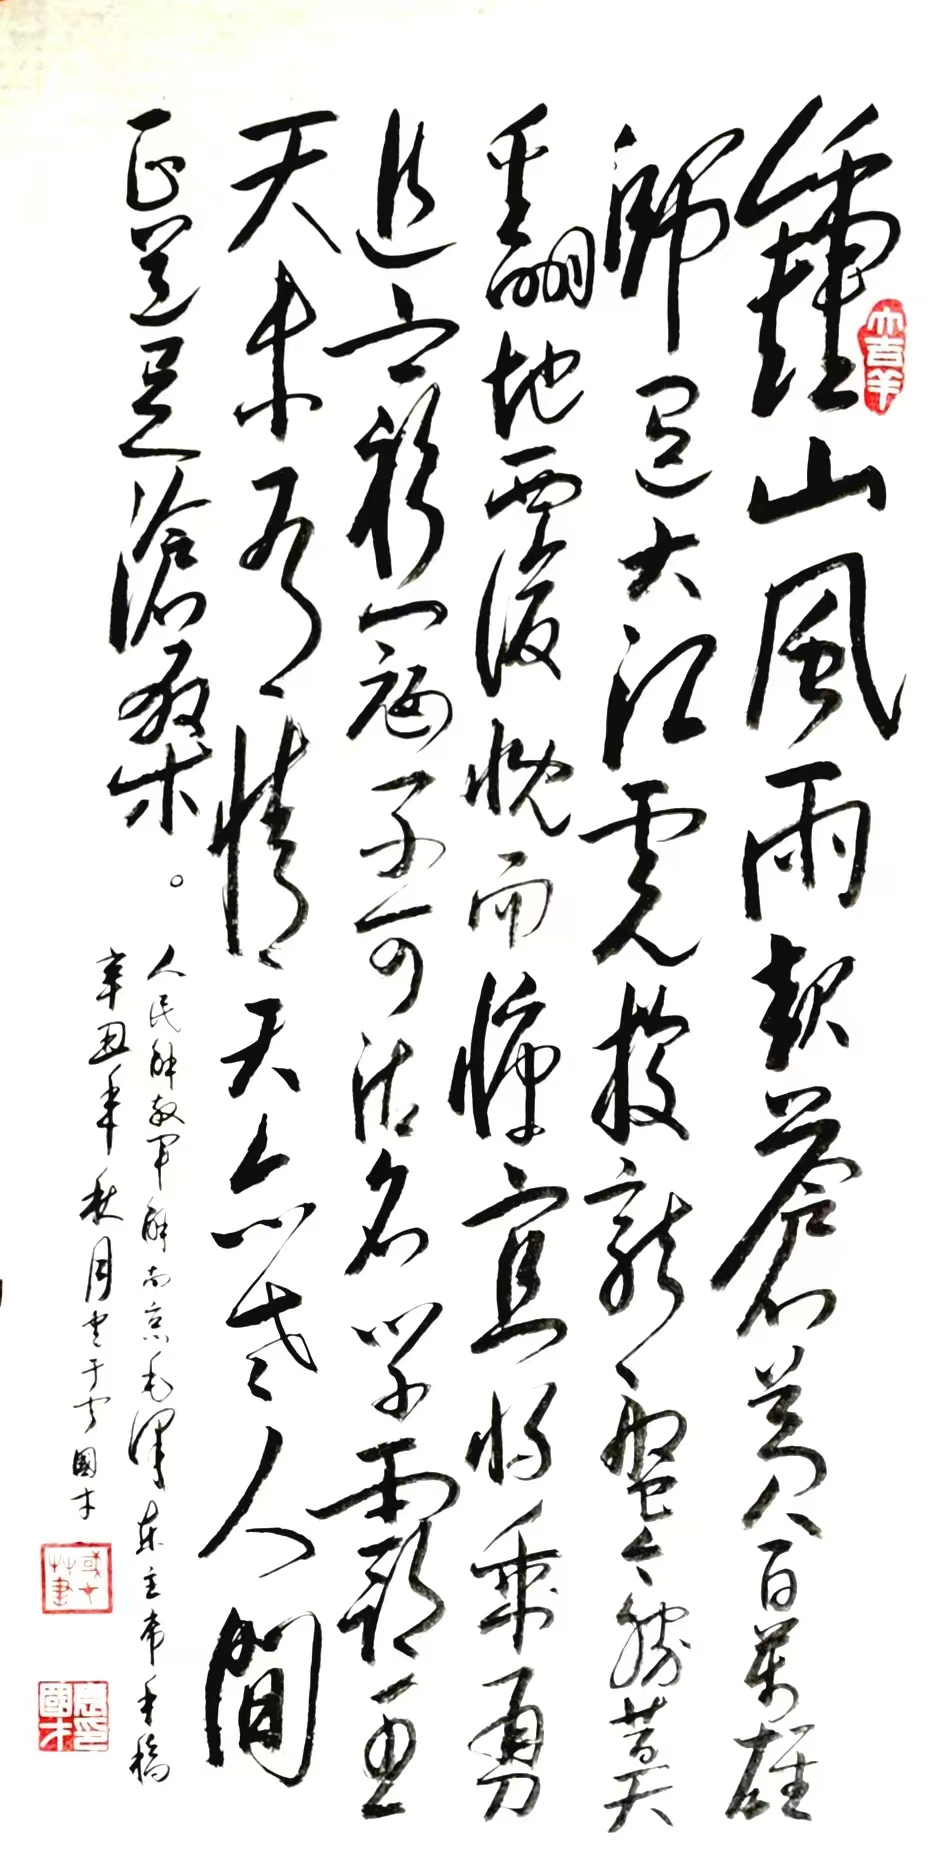 鍾山風雨起蒼黃百萬雄
師過大江虎踞龍盤今勝昔天
翻地覆慨而慷宜將剩勇
追窮寇不可沽名學霸王
天若有情天亦老人間
正道是滄桑。
人民解放軍解南京毛澤東主席手稿
辛丑年秋月書于 國才
大吉羊